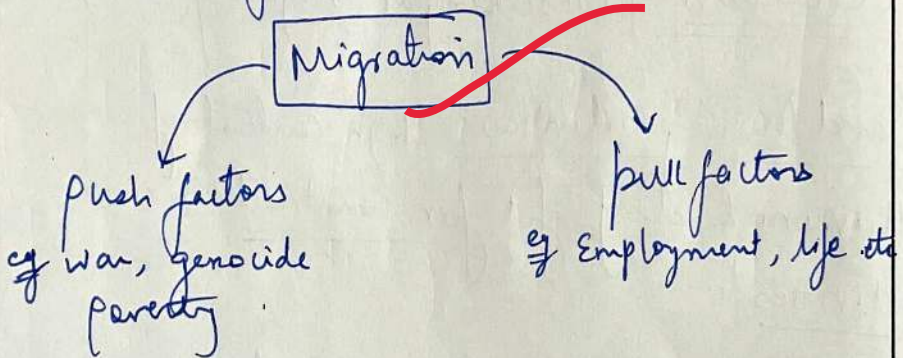 Migration
push factors
eg war, genocide
poverty
pull factors
eg Employment, life etc